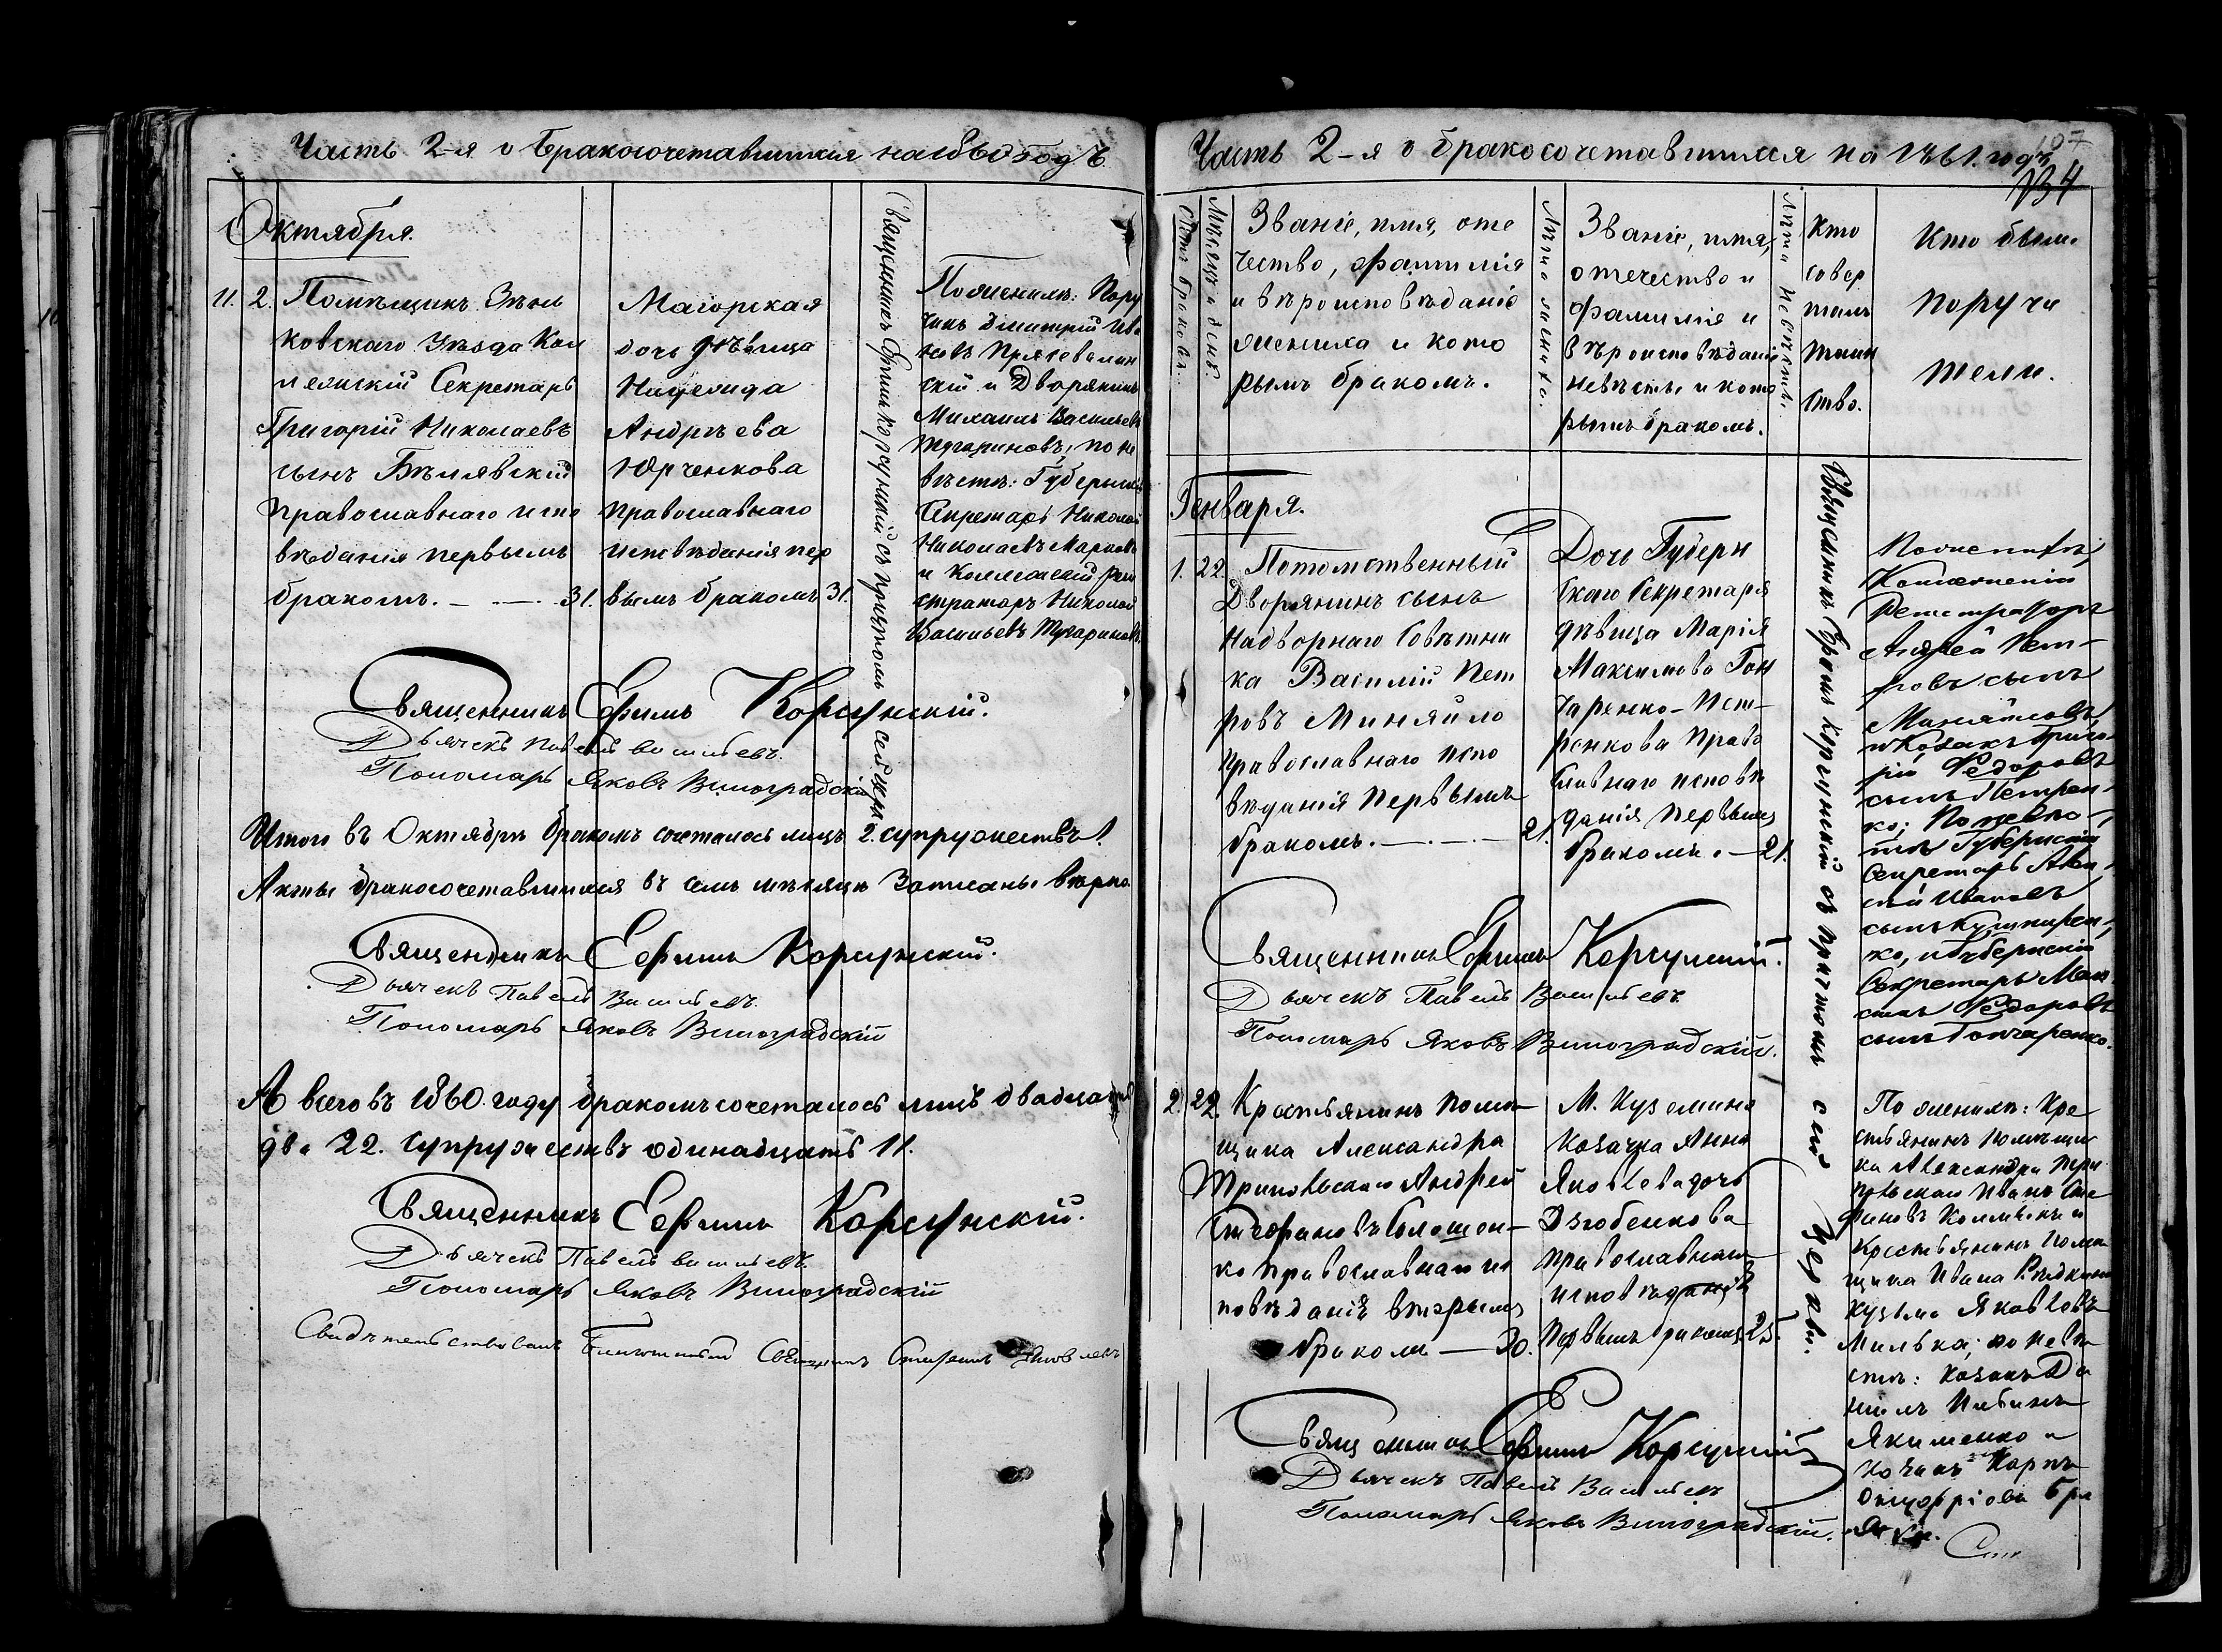 Часть 2-я о Бракосочетавшихся на 1860 годъ.
Октября.
11. 2. Помѣщикъ Зѣнь
ковскаго Уѣзда Кол
лежскій Секретарь
Григорій Николаевъ
сынъ Бѣлявскій
православнаго испо
вѣданія первымъ
бракомъ. 31.
Маіорская
дочь дѣвица
Андрѣева
Юрченкова
православнаго
исповѣданія пер
вымъ бракомъ 31.
Священникъ Ефимъ Корсунскій съ причтомъ сей церкви
По женихѣ: Пору
чикъ Дмитрій Ива
новъ и Дворянинъ
Михаилъ Васильевъ
Тугариновъ; по не
вѣстѣ: Губернскій
Секретарь Николай
Николаевъ
и Коллежскій Реги
страторъ Николай
Васильевъ Тугариновъ.
Священникъ Ефимъ Корсунскій.
Дьячекъ Павелъ Васильевъ.
Пономарь Яковъ Виноградскій
Итого въ Октябрѣ бракомъ сочеталось лицъ 2. супружествъ 1.
Акты бракосочетавшихся въ семъ мѣсяцѣ записаны вѣрно.
Священникъ Ефимъ Корсунскій.
Дьячекъ Павелъ Васильевъ.
Пономарь Яковъ Виноградскій
А всего въ 1860 году бракомъ сочеталось лицъ двадцать
два 22. супружествъ одинадцать 11.
Священникъ Ефимъ Корсунскій.
Дьячекъ Павелъ Васильевъ.
Пономарь Яковъ Виноградскій
Свидѣтельствовалъ Благочинный Священникъ Яковлевъ
107
Часть 2-я о бракосочетавшихся на 1861. годъ
134
Счетъ браковъ.
Мѣсяцъ и день
Званіе, имя, оте
чество, фамилія
и вѣроисповѣданіе
жениха и кото
рымъ бракомъ.
Лѣта жениха.
Званіе, имя,
отечество и
фамилія и
вѣроисповѣданіе
невѣсты и кото
рымъ бракомъ.
Лѣта невѣсты.
Кто
совер
шалъ
таин
ство.
Кто были
поручи
тели.
Генваря.
1. 22. Потомственный
Дворянинъ сынъ
Надворнаго Совѣтни
ка Василій Пет
ровъ Миняйло
православнаго испо
вѣданія первымъ
бракомъ. 21.
Дочь Губерн
скаго Секретаря
дѣвица Марія
Максимова Гон
чаренко-Пет-
ренкова Право
славнаго исповѣ
данія первымъ
бракомъ. 21.
Священникъ Ефимъ Корсунскій съ причтомъ сей церкви.
По женихѣ,
Коллежскій
Регистраторъ
Андрей Пет-
ровъ сынъ
и Козакъ Григо
рій Федоровъ
сынъ Петрен-
ко; По невѣ-
стѣ Губернскій
Секретарь
Ивановъ
сынъ Кушнирен-
ко, и Губернскій
Секретарь Мак
симъ Федоровъ
сынъ Гончаренко.
Священникъ Ефимъ Корсунскій.
Дьячекъ Павелъ Васильевъ
Пономарь Яковъ Виноградскій.
2. 22. Крестьянинъ помѣ
щика Александра
Андрей
Стефановъ
ко православнаго ис
повѣданія вторымъ
бракомъ — 30.
М. Куземина
Козачка Анна
Яковлева дочь
Дзюбенкова
православнаго
исповѣданія
первымъ бракомъ 25.
По женихѣ: Кре
стьянинъ помѣщи
ка Александра
Иванъ Сте
фановъ и
Крестьянинъ помѣ
щика Ивана
Кузьма Яковлевъ
Милька; по невѣ
стѣ: Козакъ Да
ніилъ
Якименко и
Козакъ Карпъ
Онуфріевъ
Священникъ Ефимъ Корсунскій
Дьячекъ Павелъ Васильевъ
Пономарь Яковъ Виноградскій.